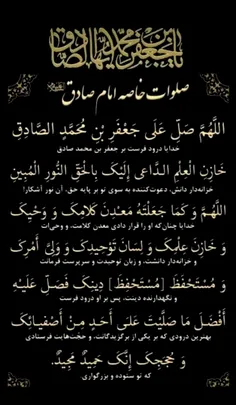 یا جعفر بن محمد ایها الصادق
صلوات خاصه امام صادق
اللَّهُمَّ صَلِّ عَلَى جَعْفَرِ بْنِ مُحَمَّدٍ الصَّادِقِ
خدایا درود فرست بر جعفر بن محمد صادق
خَازِنِ الْعِلْمِ الدَّاعِي إِلَيْكَ بِالْحَقِّ النُّورِ الْمُبِينِ
خزانه‌دار دانش، دعوت‌کننده به سوی تو بر پایه حق، آن نور آشکار!
اللَّهُمَّ وَ كَمَا جَعَلْتَهُ مَعْدِنَ كَلامِكَ وَ وَحْيِكَ
خدایا چنان‌که او را قرار دادی معدن کلامت، و وحی‌ات
وَ خَازِنَ عِلْمِكَ وَ لِسَانَ تَوْحِيدِكَ وَ وَلِيَّ أَمْرِكَ
و خزانه‌دار دانشت، و زبان توحیدت و سرپرست فرمانت
وَ مُسْتَحْفَظَ [مُسْتَحْفِظَ] دِينِكَ فَصَلِّ عَلَيْهِ
و نگهدارنده دینت، پس بر او درود فرست
أَفْضَلَ مَا صَلَّيْتَ عَلَى أَحَدٍ مِنْ أَصْفِيَائِكَ
بهترین درودی که بر یکی از برگزیدگانت، و حجت‌هایت فرستادی
وَ حُجَجِكَ إِنَّكَ حَمِيدٌ مَجِيدٌ.
که تو ستوده و بزرگواری